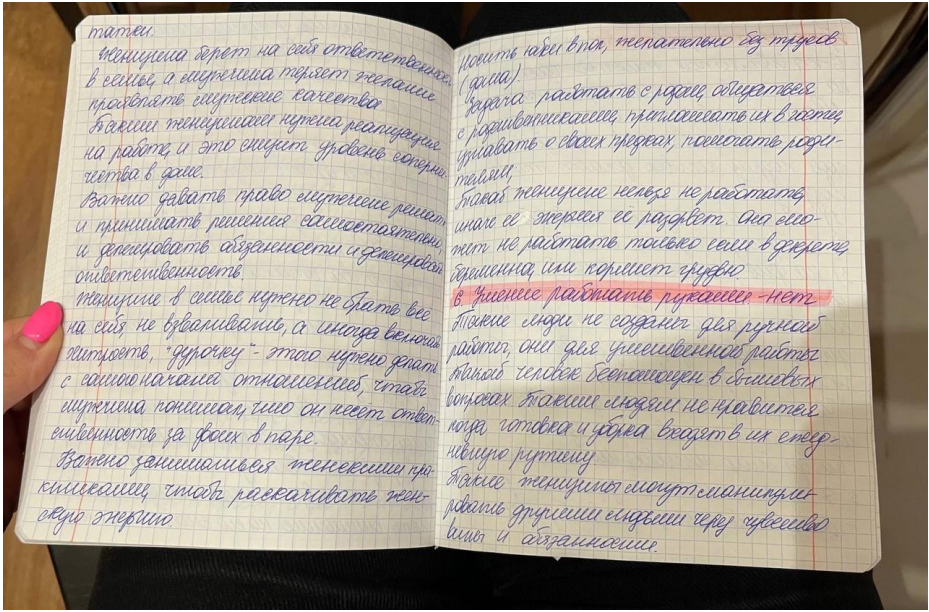 татки.
Женщина берет на себя ответственность
в семье, а мужчина теряет желание
проявлять мужские качества
Таким женщинам нужна реализация
на работе, и это снизит уровень соперни-
чества в доме.
Важно давать право мужчине решать
и принимать решения самостоятельно
и делегировать обязанности и делегировать
ответственность
Женщине в семье нужно не брать все
на себя, не взваливать, а иногда включать
хитрость, "дурочку" - этого нужно делать
с самого начала отношений, чтобы
мужчина понимал, что он несет ответ-
ственность за двоих в паре.
Важно заниматься женскими пра-
ктиками, чтобы раскачивать жен-
скую энергию
Носить юбки в пол, желательно без трусов
(дома).
Задача работать с родом, общаться
с родственниками, приглашать их в гости,
узнавать о своих предках, помогать роди-
телям,
Такой женщине нельзя не работать,
иначе ее энергия ее разорвет. она мо-
жет не работать только если в декрете,
беременна, или кормит грудью
6. Умение работать руками - нет
Такие люди не созданы для ручной
работы, они для умственной работы
Такой человек беспомощен в бытовых
вопросах. Таким людям не нравится
когда готовка и уборка входят в их ежед-
невную рутину
Такие женщины могут манипули-
ровать другими людьми через чувство
вины и обязанности.